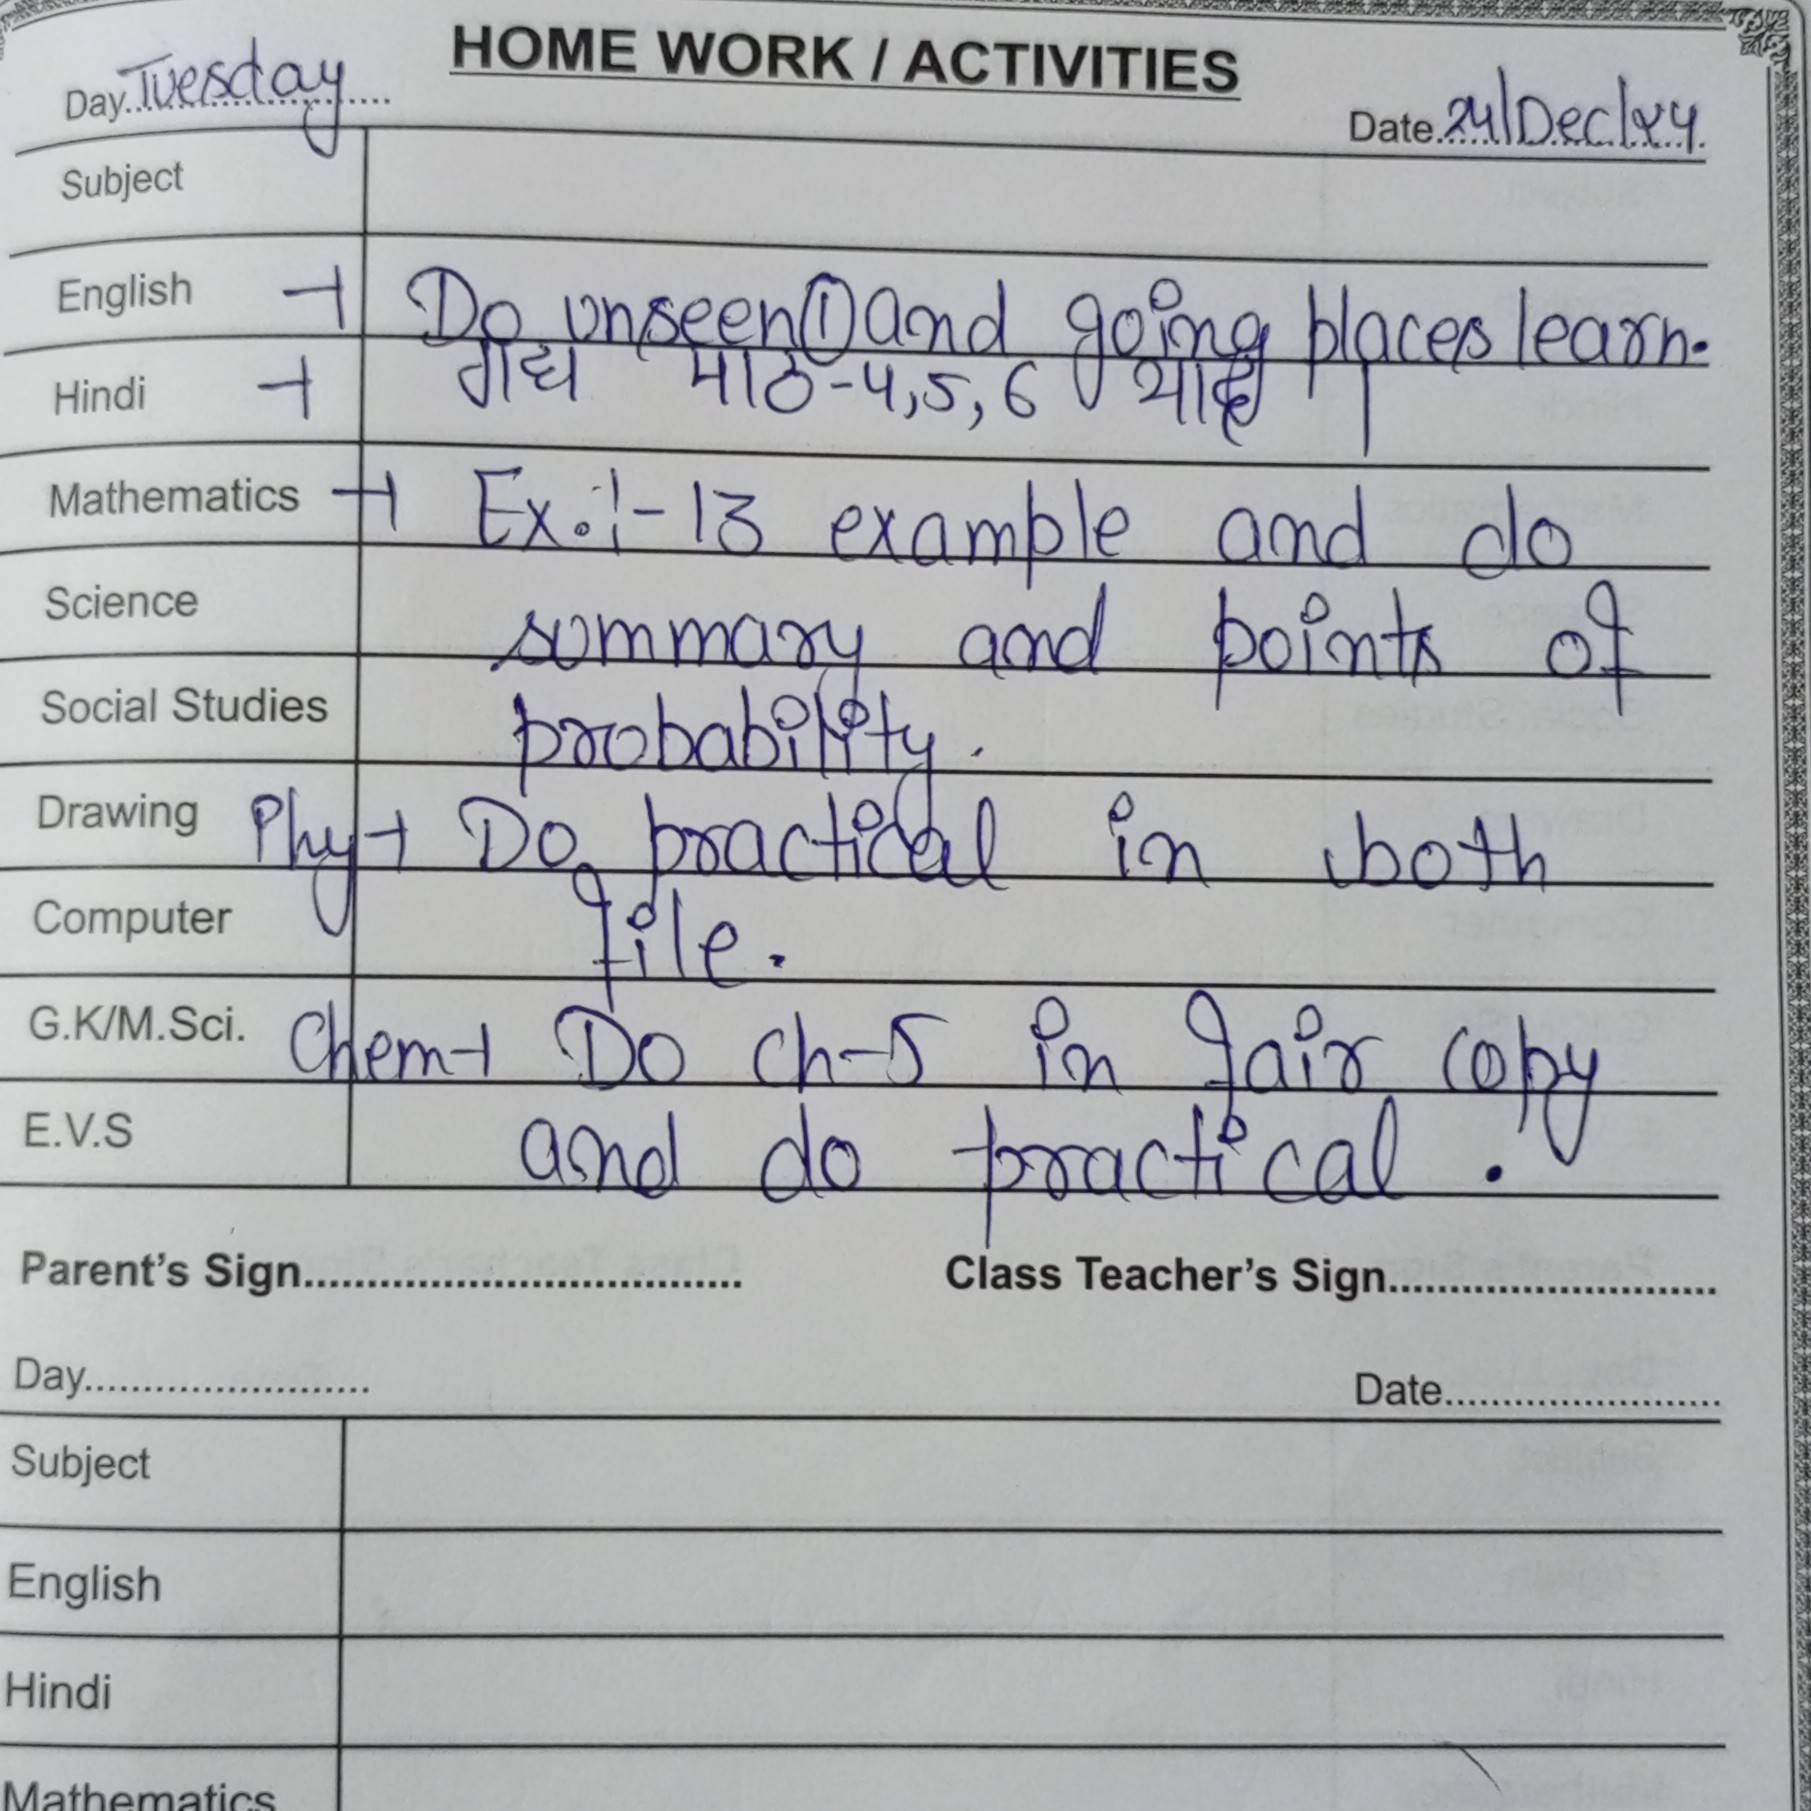 HOME WORK / ACTIVITIES
Day..Tuesday.......... Date..24/Dec/24.
Subject
English → Do unseen① and going places learn.
Hindi → गद्य पाठ-4,5,6 याद
Mathematics → Ex.:- 13 example and do
Science summary and points of
Social Studies probability.
Drawing Phy → Do practical in both
Computer file.
G.K/M.Sci. Chem → Do ch-5 in fair copy
E.V.S and do practical.
Parent's Sign.................................... Class Teacher's Sign...........................
Day......................... Date........................
Subject
English
Hindi
Mathematics